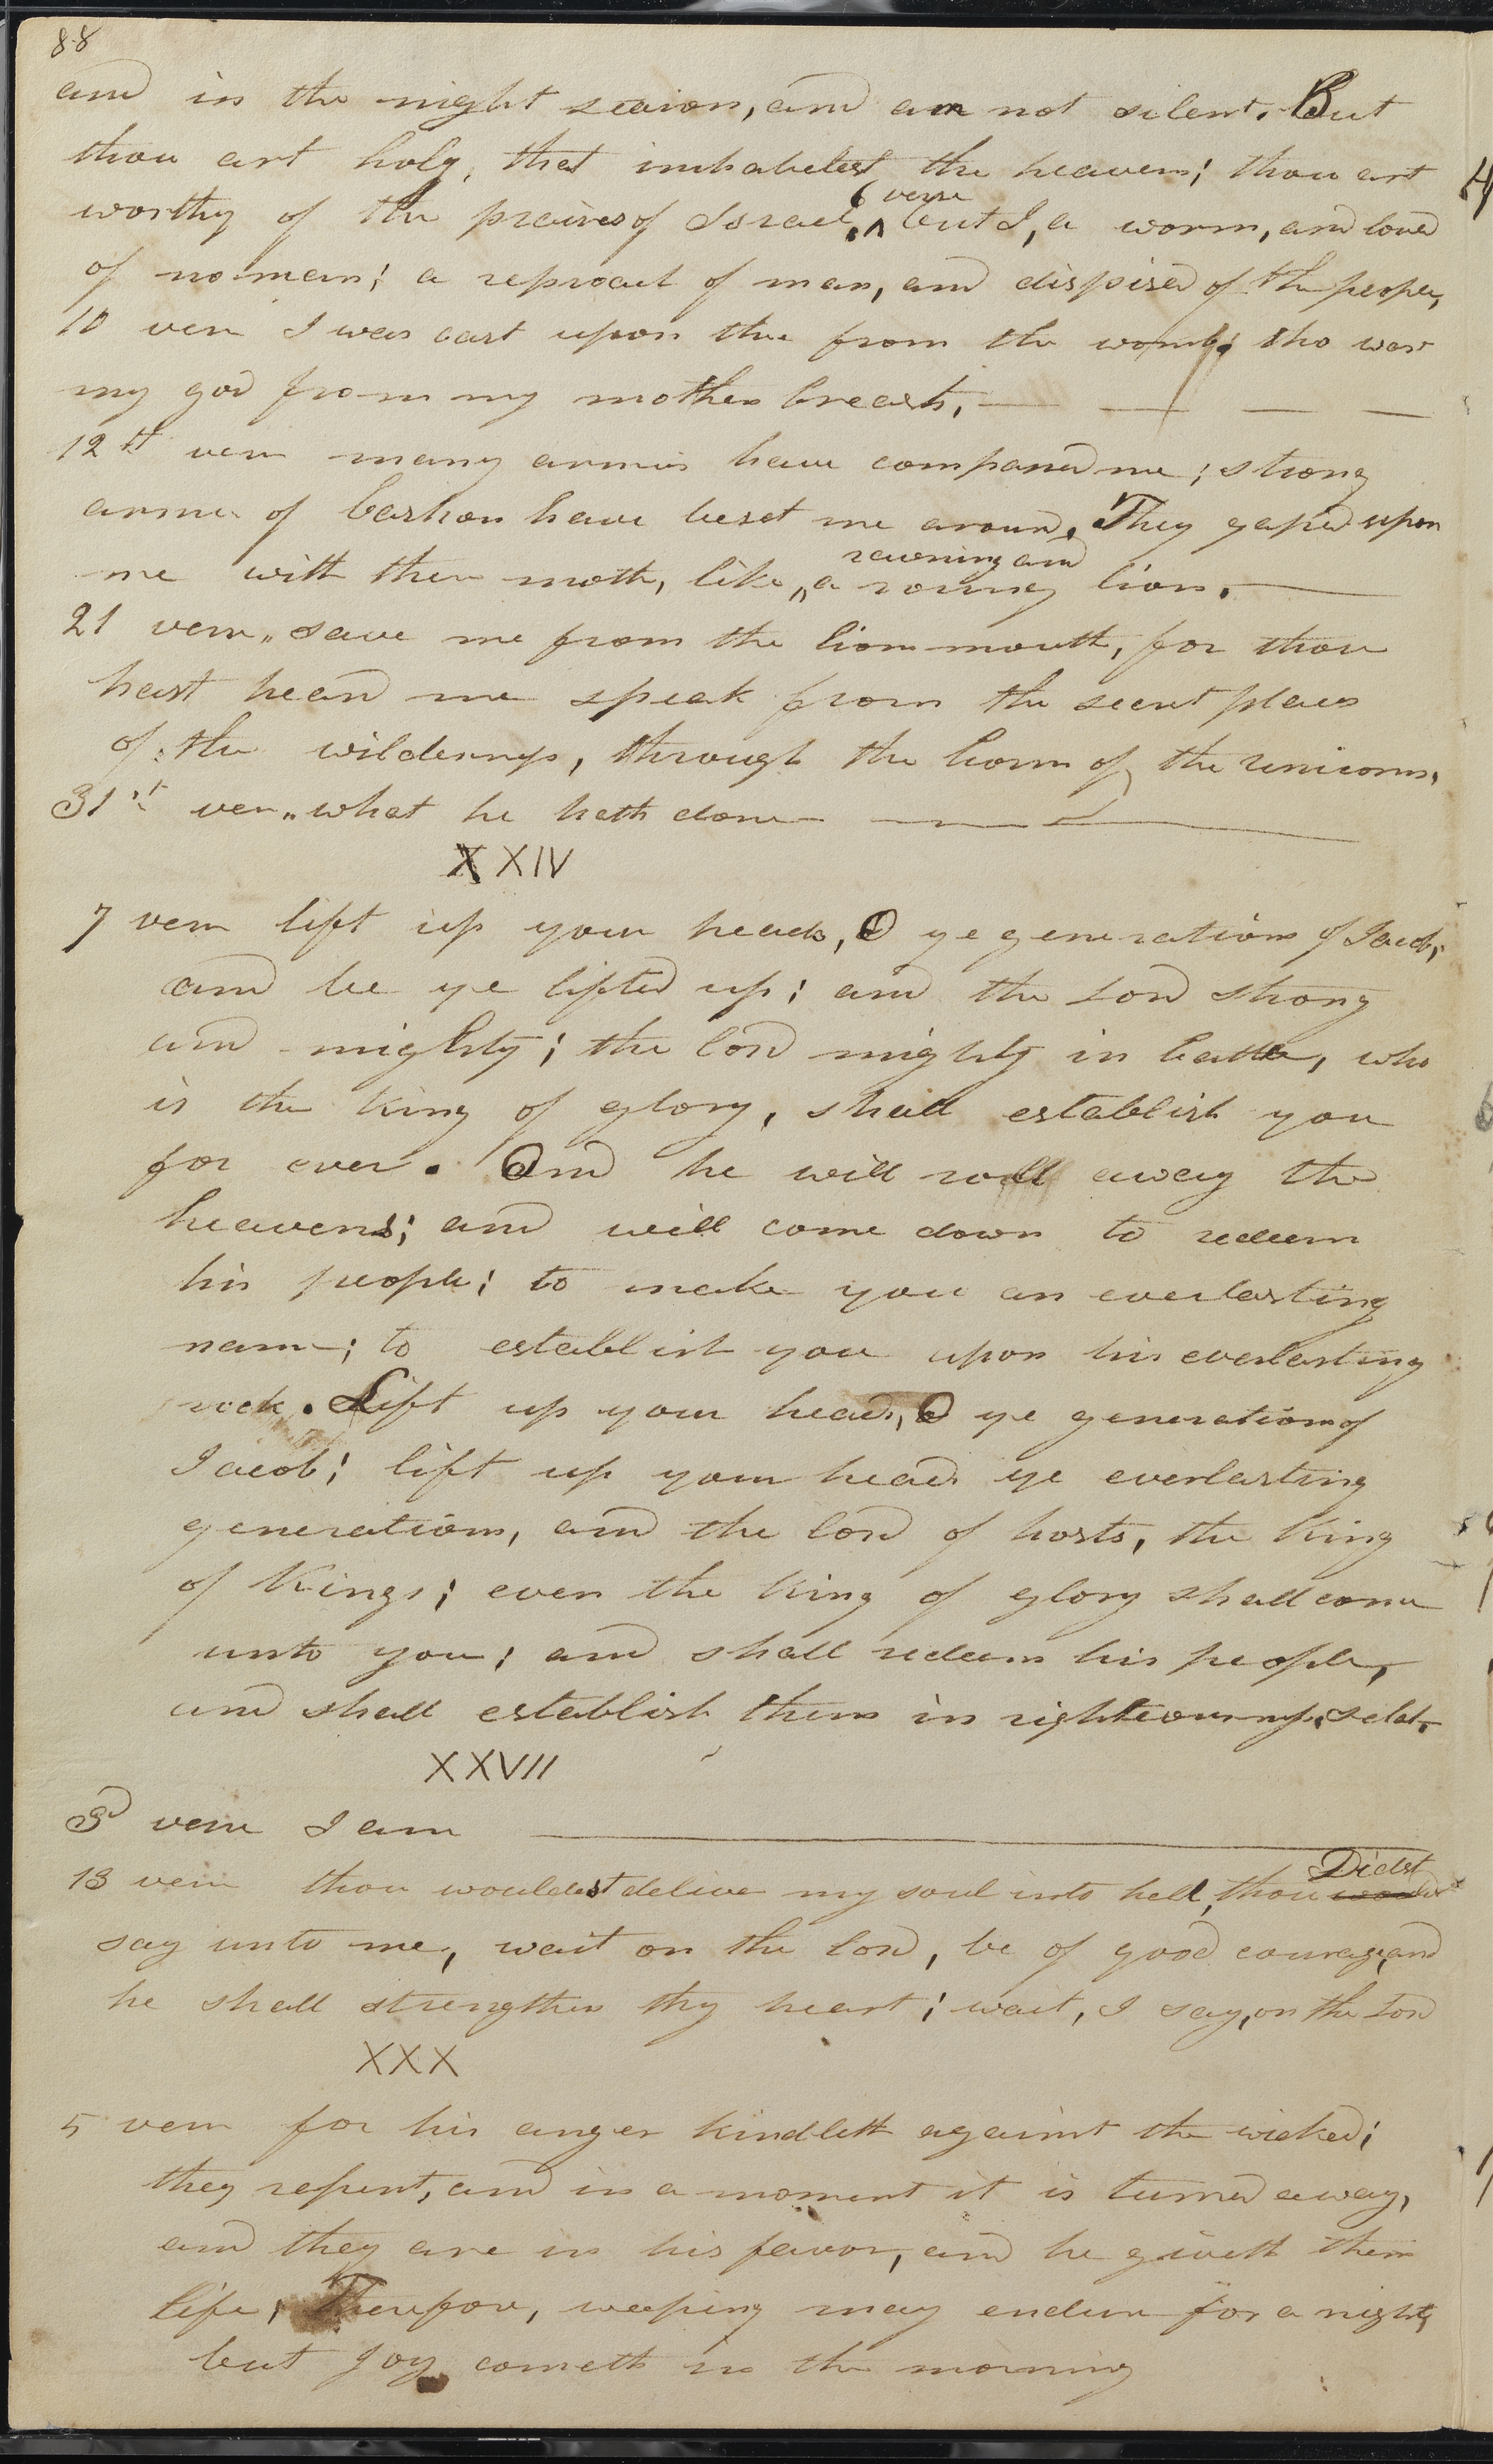 88
and in the night season, and am not silent. But
thou art holy, that inhabetest the heavens; thou art
worthy of the praises of Israel. ^ 6 verse but I, a worm, and loved
of no man; a reproach of man, and dispised of the people,
10 vers I was cast upon thee from the womb; tho was
my god from my mothers breasts, — — — —
12th vers many armies have compassed me; strong
armes of bashan have beset me around. They gaped upon
me with their moth, like ^ ravening and a roaring lion. —
21 vers,, save me from the lions mouth, for thou
hast heard me speak from the secret places
of the wilderness, through the horns of the unicorns,
31st vers,, what he hath done —
XXIV
7 vers lift up your heads, O ye generations of Jacob;
and be ye lifted up; and the Lord strong
and mighty; the lord mighty in battle, who
is the King of glory, shall establish you
for ever. And he will roll away the
heavens; and will come down to redeem
his people; to make you an everlasting
name; to establish you upon his everlasting
rock. Lift up your heads, O ye generations of
Jacob; lift up your heads ye everlasting
generations, and the lord of hosts, the King
of Kings; even the King of glory shall come
unto you; and shall redeem his people,
and shall establish them in righteousness, selah.
XXVII
3d vers I am —
13 vers thou wouldest delive my soul into hell, thou Didst
say unto me, wait on the lord, be of good courage, and
he shall strengthen thy heart; wait, I say, on the Lord
XXX
5 vers for his anger kindleth against the wicked;
they repent, and in a moment it is turned away,
and they are in his favor, and he giveth them
life; Therefore, weeping may endure for a night,
but joy cometh in the morning